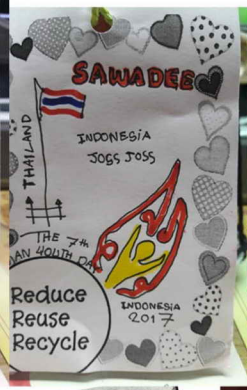 SAWADEE
THAILAND
INDONESIA
JOSS JOSS
THE 7th
AN YOUTH DAY
INDONESIA
2017
Reduce
Reuse
Recycle